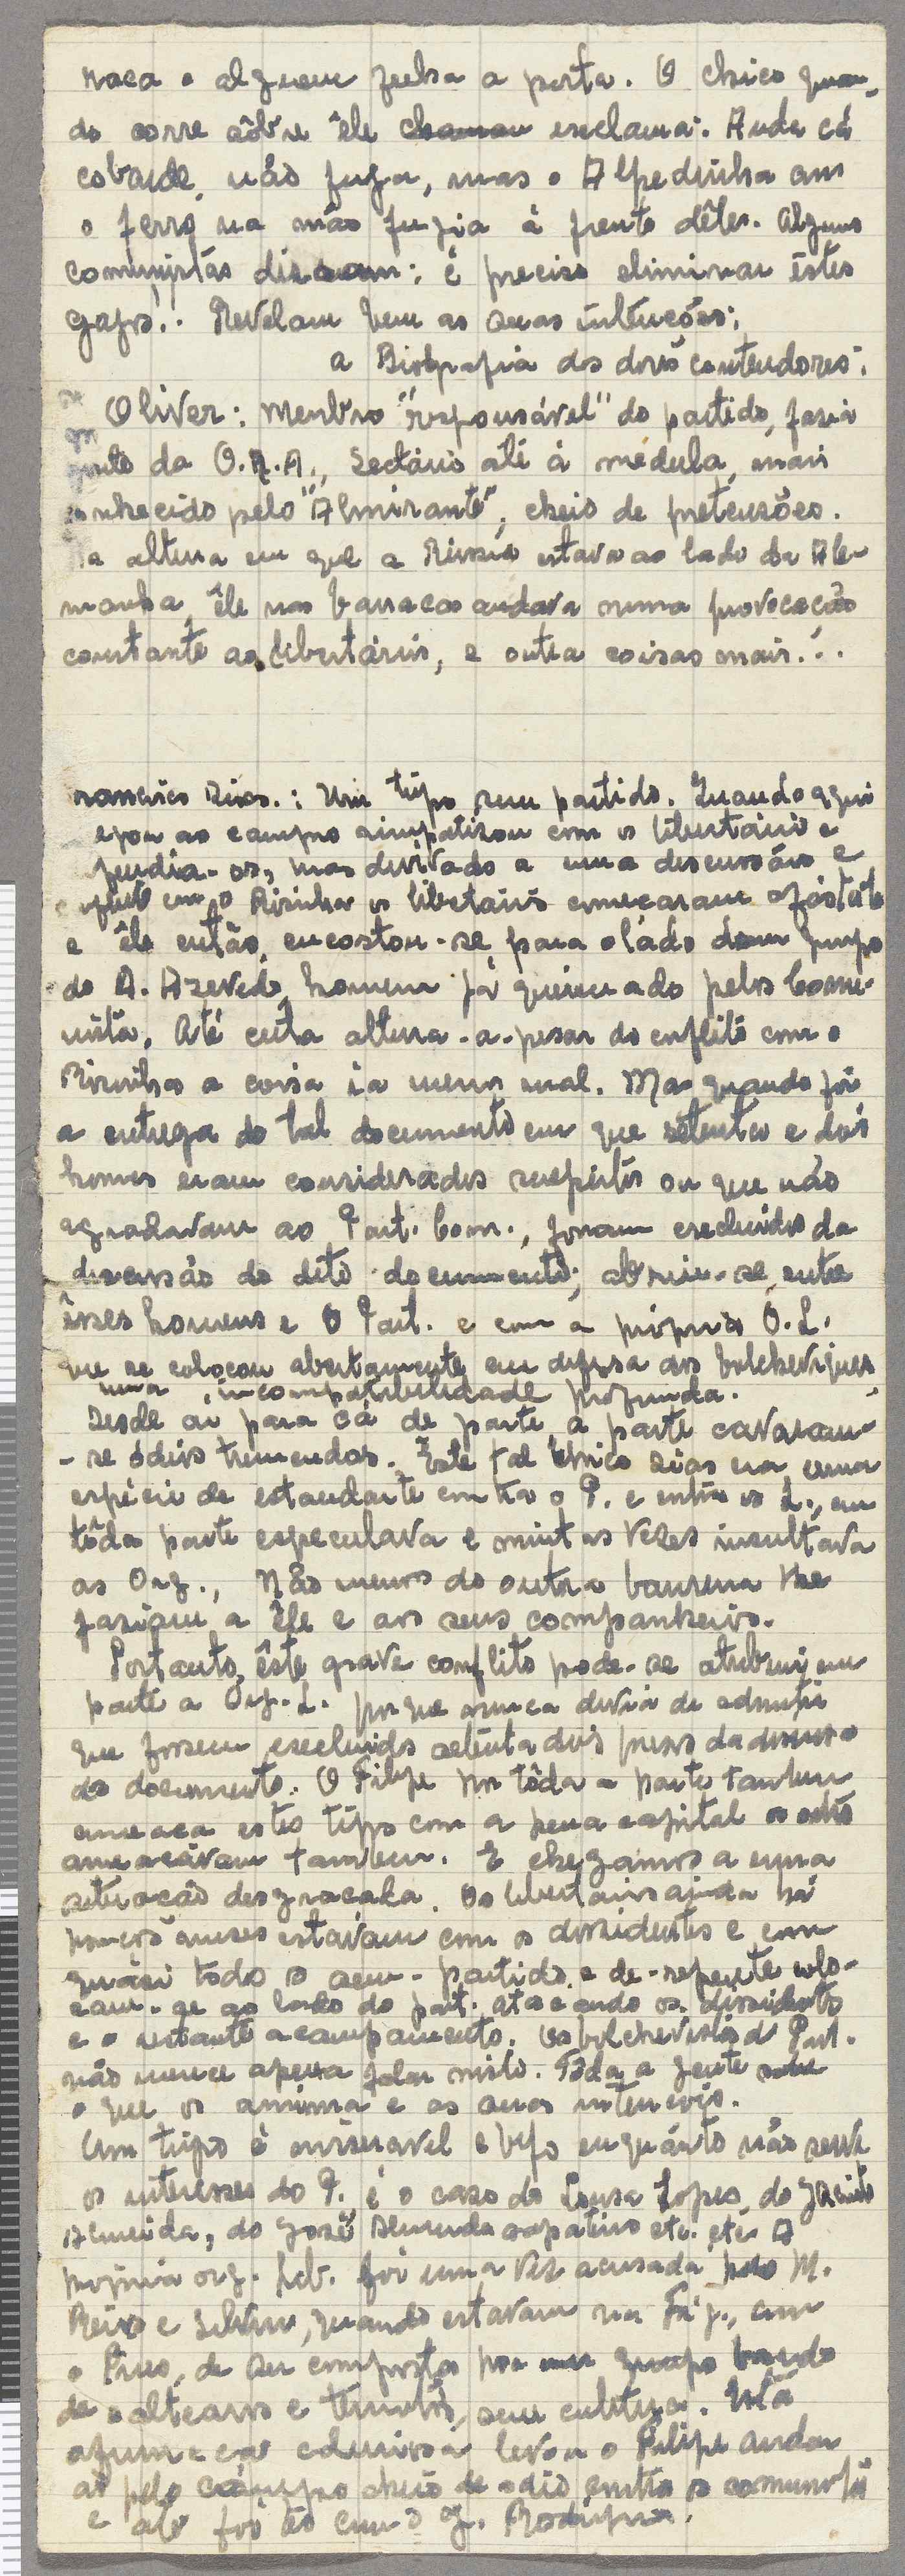 naca e alguem fecha a porta. O chico quan-
do corre sôbre êle exclama: Anda cá
cobarde, não fuja, mas o Alpedrinha com
o ferro na mão fugia à frente dêles. Alguns
comunistas disseram: é preciso eliminar êstes
gajos!.. Revelam bem as suas intenções:
a Biografia dos dois contendores:
Oliver: Membro "responsável" do partido, fazia
parte da O.R.A., Sectário até à médula, mais
conhecido pelo "Almirante", cheio de pretensões.
Na altura em que a Rússia estava ao lado da Ale-
manha, êle nos barracos andava numa provocação
constante aos libertários, e outra coisas mais...
rancisco Dias.: Um tipo sem partido. Quando aqui
egou ao campo simpatizou com os libertário e
fendia-os, mas derivado a uma descursão e
conflito com o os libertários começaram afástá-lo
e êle então, encostou-se para o lado dum grupo
do A. Azevedo, homem já queimado pelos Comu-
nista. Até certa altura-a-pesar do conflito com o
a coisa ia menos mal. Mas quando foi
a entrega do tal documento em que setenta e dois
homes eram considerados suspeitos ou que não
agradavam ao Part. Com., foram excluidos da
discursão do dito documento; abriu-se entre
êsses homens e O Part. e com a própria O.L.
que se colocou abertamente em defesa dos bolcheviques
uma incompatibilidade profunda.
Desde aí para cá de parte, a parte cavaram-
-se ódeos tremendos. Êste tal chico Dias era uma
espécie de estandarte contra o P. e contra os L., em
tôda parte especulava e muitas vezes insultava
as Org., Não menos do outra banreira lhe
faziam a êle e aos seus companheiros.
Portanto, êste grave conflito pode-se atribuir em
parte a Org. L. porque nunca devia de admitir
que fossem excluidos setenta dois presos da discursão
do documento. O Filipe por tôda a parte tambem
ameaça estes tipos com a pena capital os outros
ameaçávam tambem. E chegamos a uma
setuação desgraçada. Os libertários ainda há
poucos meses estavam com os dissidentes e com
quási todos os sem-partido, e de-repente colo-
cam-se ao lado do part. atacando os dissidentes
e o restante acampamento. Os bolchevistas do Part.
não merece apena falar nisto. Tôda a gente sabe
o que os anima e as suas intenções.
Um tipo é miseravel e bufo enquánto não serve
os interesses do P., é o caso do Sousa Lopes, do Jacinto
Almeida, do José Almeida sapateiro etc. etc. A
própria org. lib. foi uma vez acusada pelo M.
e Silvino, quando estavam na, com
o, de ser composta por grupo bando
de salteares e, sem cultura. Esta
afirmação levou o Filipe andar
aí pelo câmpo cheio de odio contra os comunista
e até foi ás com o G. Rodrigues.